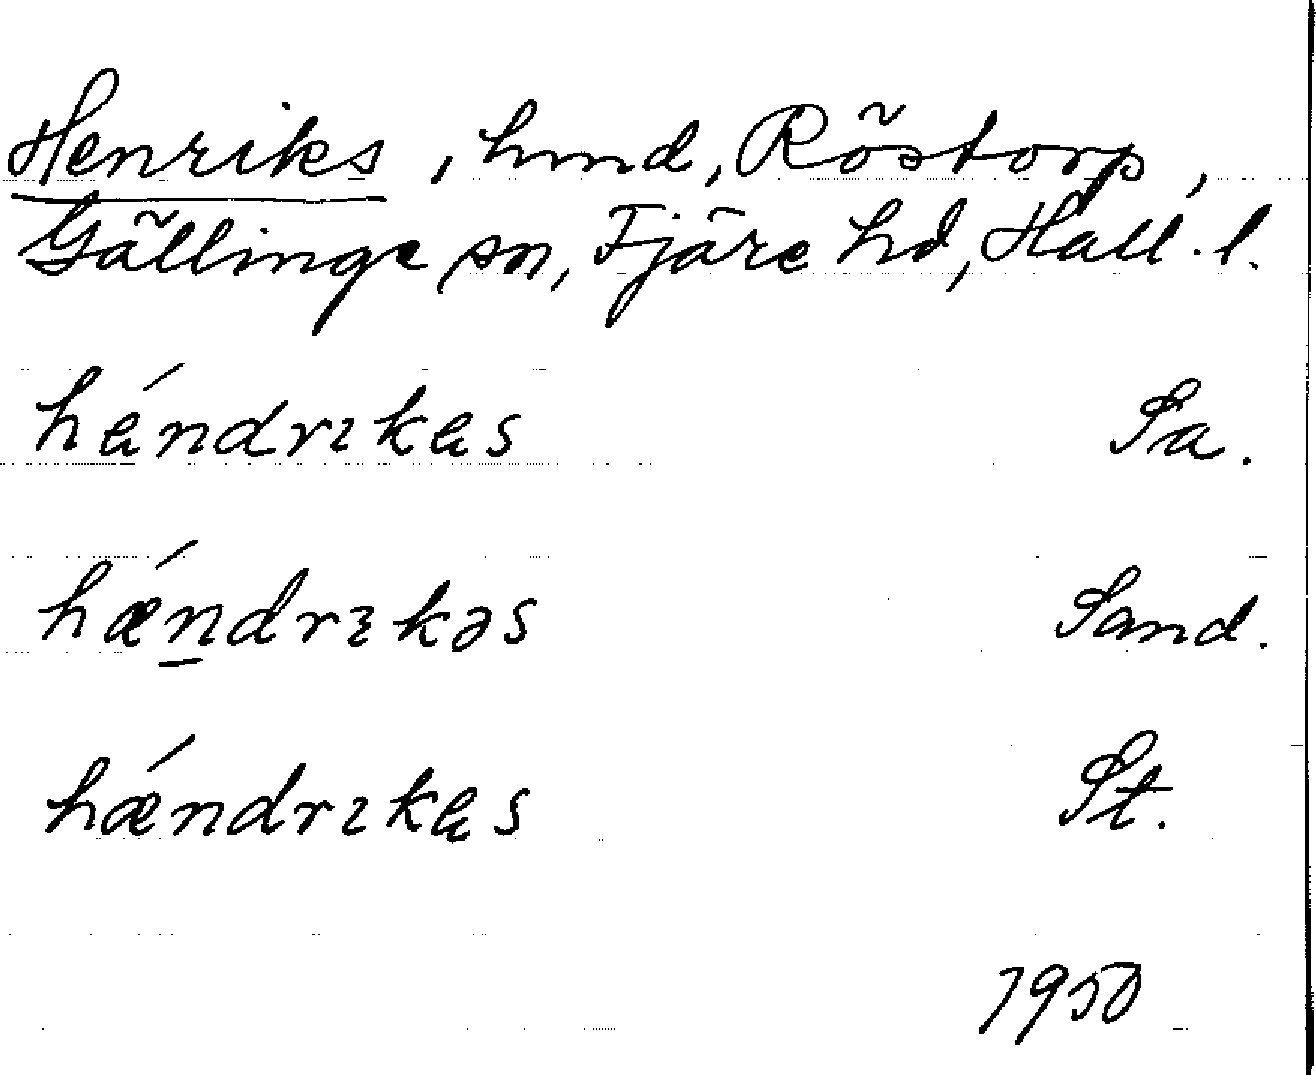 Henriks, hmd, Röstorp,
Gällinge sn, Fjäre hd, Hall. l.
hándrıkas Sa.
hǽn̲drıkəs Sand.
hǽndrıkas St.
1950